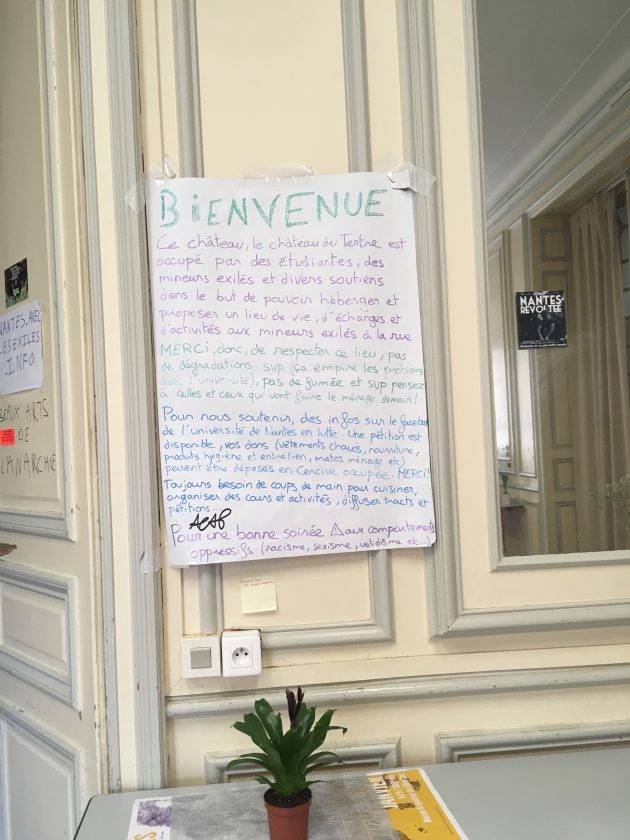 BIENVENUE
Ce château, le château du Tertre est
occupé par des étudiantes, des
mineurs exilés et divers soutiens
dans le but de pouvoir héberger et
proposer un lieu de vie, d'échanges et
d'activités aux mineurs exilés à la rue.
MERCI, donc, de respecter ce lieu, pas
de dégradations svp (ça empire les problèmes
avec l'université), pas de fumée et svp pensez
à celles et ceux qui vont faire le ménage demain!
Pour nous soutenir, des infos sur le facebook
de l'université de Nantes en lutte. Une pétition est
disponible, vos dons (vêtements chauds, nourriture,
produits hygiène et entretien, matos ménage etc)
peuvent être déposés en Censive occupée. MERCI!
Toujours besoin de coups de main pour cuisiner,
organiser des cours et activités, diffuser tracts et
pétitions...
ACAB
Pour une bonne soirée ⚠ aux comportements
oppressifs (racisme, sexisme, validisme etc...)
NANTES AVEC
LES EXILÉS
.INFO
BEAUX ARTS
DE
L'ANARCHIE
NANTES
RÉVOLTÉE